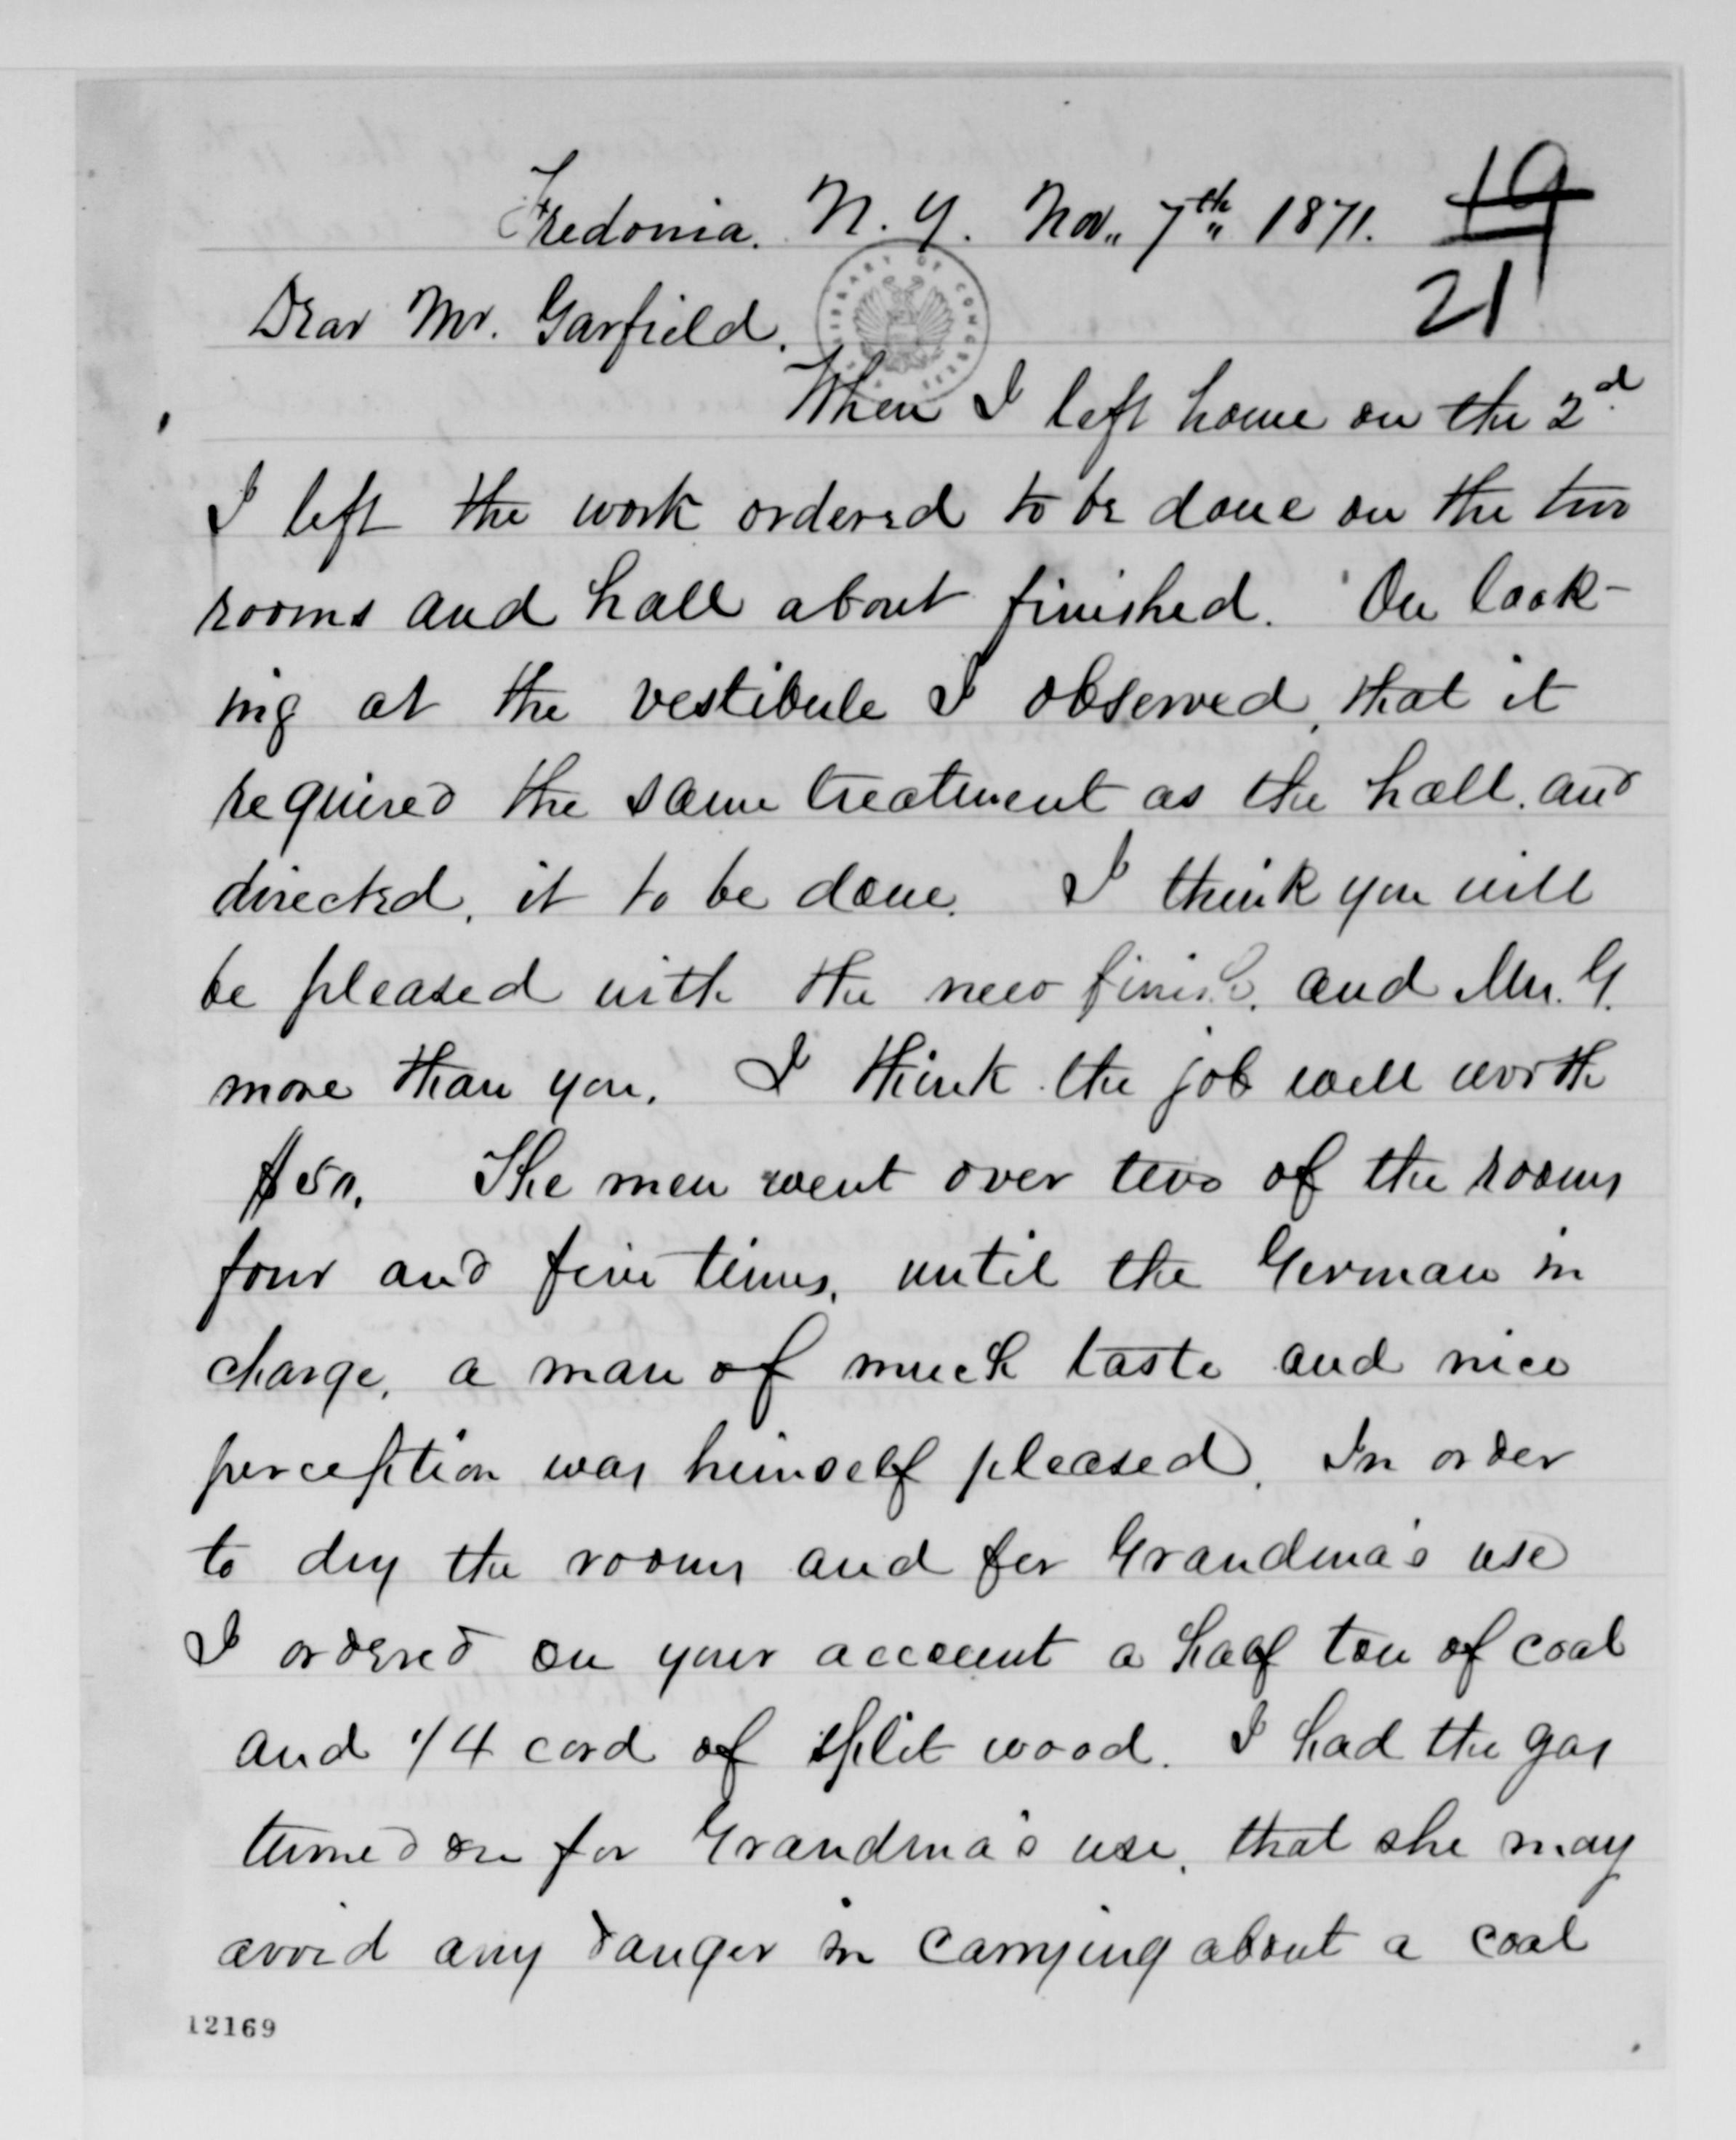 Fredonia. N. Y. Nov. 7th 1871.
19
21
Dear Mr. Garfield.
LIBRARY OF CONGRESS
When I left home on the 2d
I left the work ordered to be done on the two
rooms and hall about finished. On look-
ing at the vestibule I observed, that it
required the same treatment as the hall, and
directed, it to be done. I think you will
be pleased with the new finish, and Mrs. G.
more than you. I think the job well worth
$50. The men went over two of the rooms
four and five times, until the German in
charge, a man of much taste and nice
perception was himself pleased. In order
to dry the rooms and for Grandma's use
I ordered on your account a half ton of coal
and 1/4 cord of split wood. I had the gas
turned on for Grandma's use, that she may
avoid any danger in carrying about a coal
12169